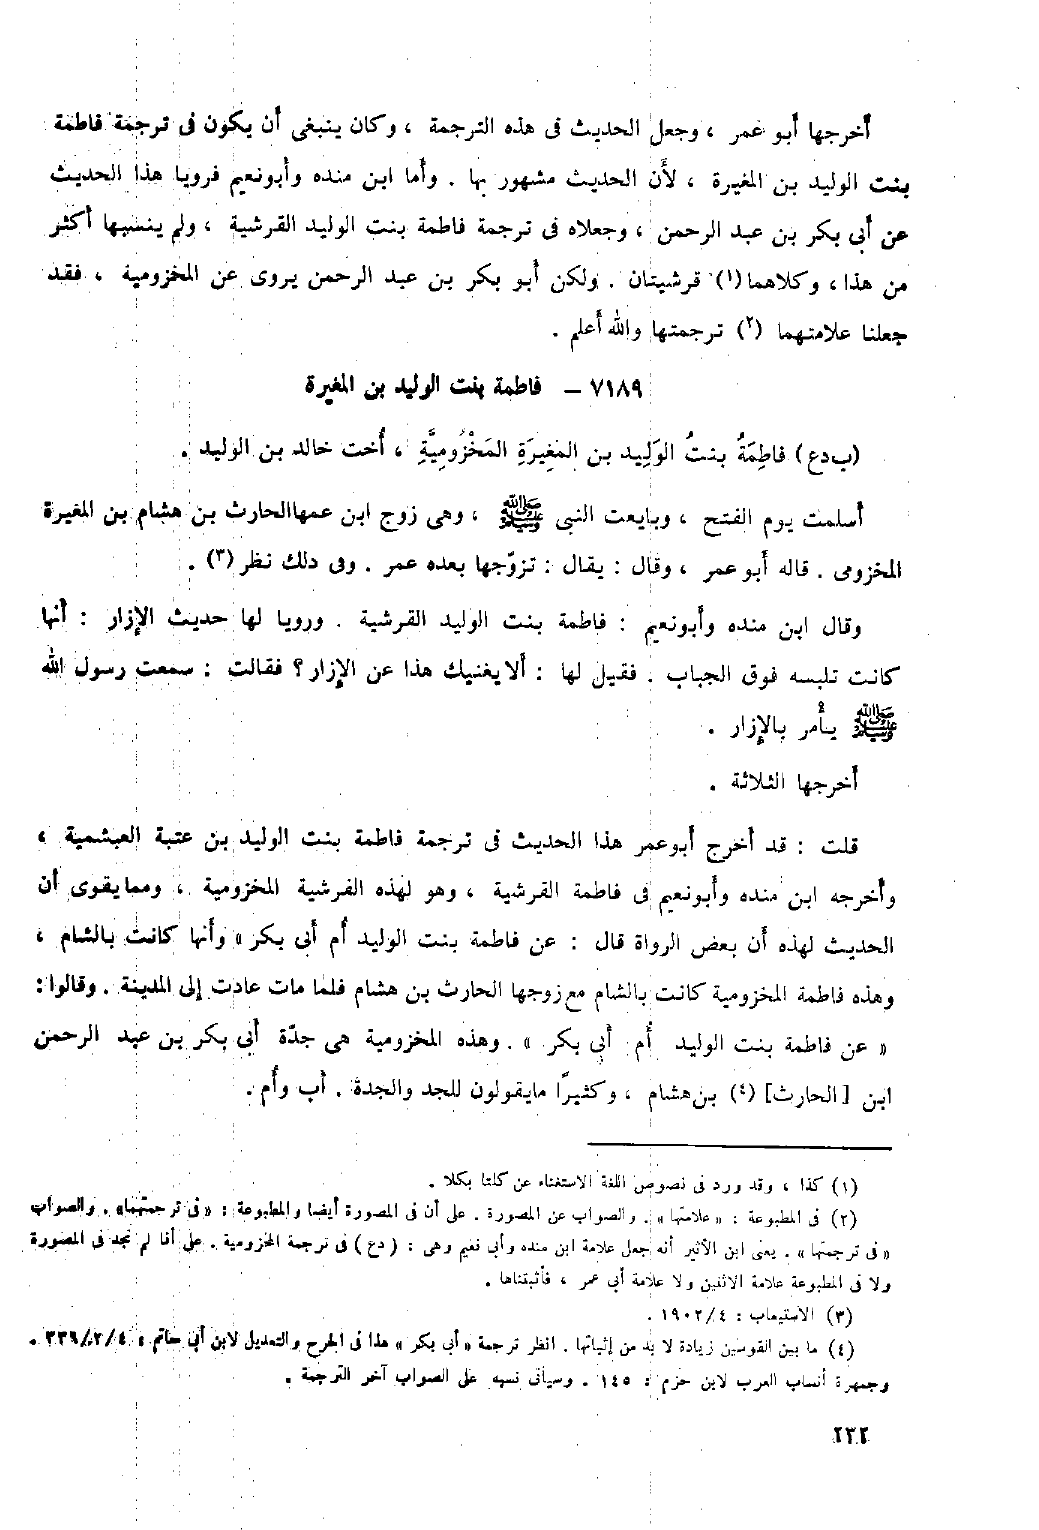 أخرجها أبو عمر ، وجعل الحديث فى هذه الترجمة ، وكان ينبغى أن يكون فى ترجمة فاطمة
بنت الوليد بن المغيرة ، لأن الحديث مشهور بها . وأما ابن منده وأبونعيم فرويا هذا الحديث
عن أبى بكر بن عبد الرحمن ، وجعلاه فى ترجمة فاطمة بنت الوليد القرشية ، ولم ينسبها أكثر
من هذا ، وكلاهما (١) قرشيتان . ولكن أبو بكر بن عبد الرحمن يروى عن المخزومية ، فقد
جعلنا علامتهما (٢) ترجمتها والله أعلم .
٧١٨٩ – فاطمة بنت الوليد بن المغيرة
(ب دع) فاطِمَةُ بنتُ الوَلِيد بن المَغِيرَةِ المَخْزُومِيَّةِ ، أُخت خالد بن الوليد .
أسلمت يوم الفتح ، وبايعت النبى ﷺ ، وهى زوج ابن عمها الحارث بن هشام بن المغيرة
المخزومى . قاله أبو عمر ، وقال : يقال : تزوّجها بعده عمر . وفى ذلك نظر (٣) .
وقال ابن منده وأبونعيم : فاطمة بنت الوليد القرشية . ورويا لها حديث الإزار : أنها
كانت تلبسه فوق الجباب . فقيل لها : ألا يغنيك هذا عن الإزار ؟ فقالت : سمعت رسول الله
ﷺ يأمر بالإزار .
أخرجها الثلاثة .
قلت : قد أخرج أبوعمر هذا الحديث فى ترجمة فاطمة بنت الوليد بن عتبة العبشمية ،
وأخرجه ابن منده وأبونعيم فى فاطمة القرشية ، وهو لهذه القرشية المخزومية ، ومما يقوى أن
الحديث لهذه أن بعض الرواة قال : عن فاطمة بنت الوليد أُم أبى بكر » وأنها كانت بالشام ،
وهذه فاطمة المخزومية كانت بالشام مع زوجها الحارث بن هشام فلما مات عادت إلى المدينة . وقالوا :
« عن فاطمة بنت الوليد أُم أبى بكر » . وهذه المخزومية هى جدّة أبى بكر بن عبد الرحمن
ابن [الحارث] (٤) بن هشام ، وكثيرًا ما يقولون للجد والجدة . أب وأُم .
(١) كذا ، وقد ورد فى نصوص اللغة الاستغناء عن كلتا بكلا .
(٢) فى المطبوعة : « علامتها » . والصواب عن المصورة . على أن فى المصورة أيضا والمطبوعة : « فى ترجمتهما » . والصواب
« فى ترجمتها » . يعنى ابن الأثير أنه جعل علامة ابن منده وأبى نعيم وهى : (دع) فى ترجمة المخزومية . على أنا لم نجد فى المصورة
ولا فى المطبوعة علامة الاثنين ولا علامة أبى عمر ، فأثبتناها .
(٣) الاستيعاب : ١٩٠٢/٤ .
(٤) ما بين القوسين زيادة لا بد من إثباتها . انظر ترجمة « أبى بكر » هذا فى الجرح والتعديل لابن أبى حاتم : ٣٣٦/٢/٤ .
وجمهرة أنساب العرب لابن حزم : ١٤٥ . وسيأتى نسبه على الصواب آخر الترجمة .
٢٣٢